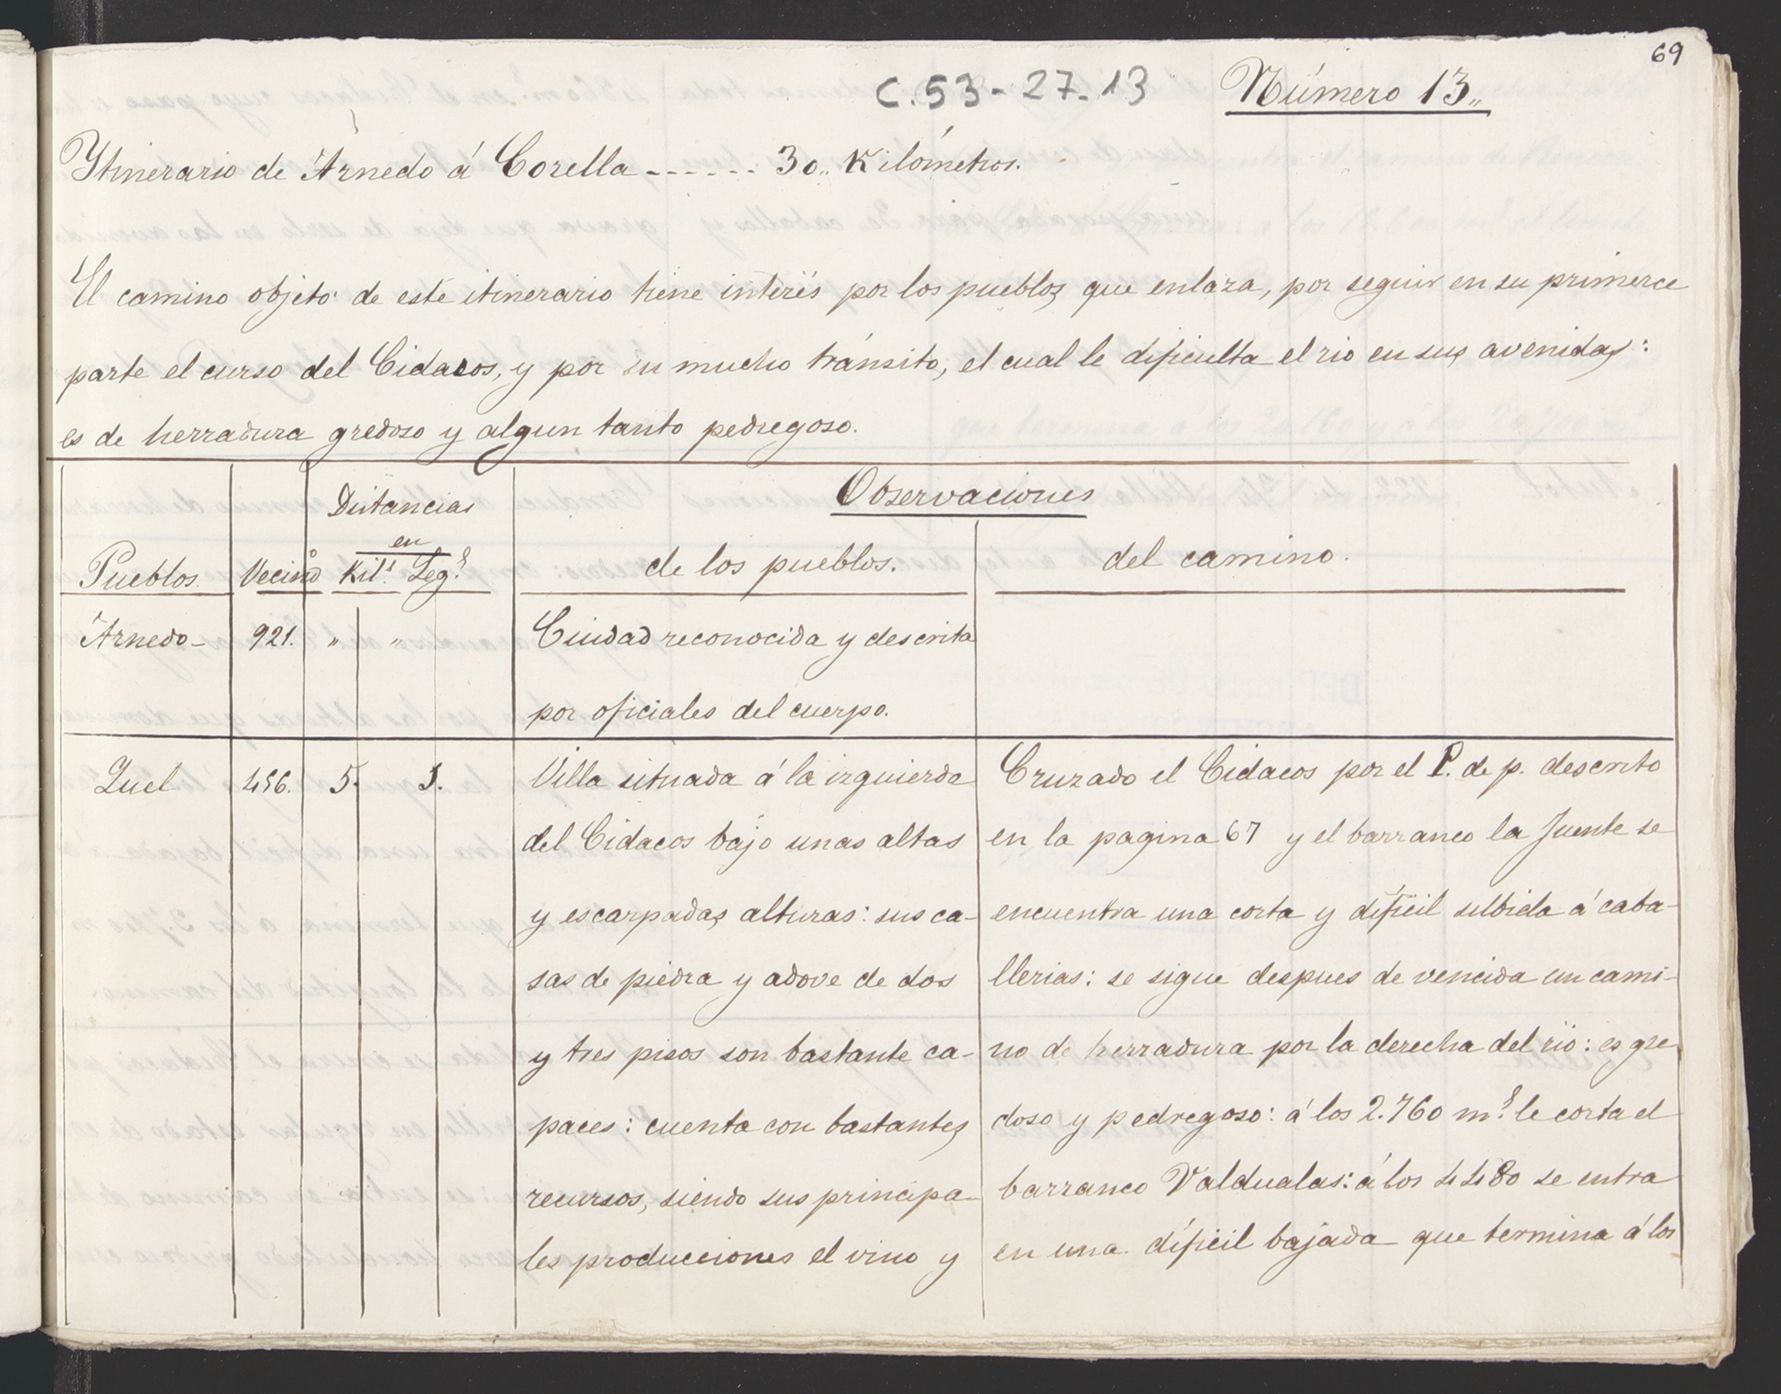 69
C. 53 - 27 - 13
Número 13"
Ytinerario de Arnedo á Corella ------ 30" Kilómetros.
El camino objeto de este itinerario tiene interés por los pueblos que enlaza, por seguir en su primerce
parte el curso del Cidacos, y por su mucho tránsito, el cual le dificulta el rio en sus avenidas:
es de herradura gredoso y algun tanto pedregoso.
Distancias
en
Observaciones
Pueblos. Vecindo Kils. Legs. de los pueblos. del camino.
Arnedo - 921. " " Ciudad reconocida y descrita
por oficiales del cuerpo.
Quel 456. 5. 1. Villa situada á la izquierda
del Cidacos bajo unas altas
y escarpadas alturas: sus ca-
sas de piedra y adove de dos
y tres pisos son bastante ca-
paces: cuenta con bastantes
recursos, siendo sus principa-
les producciones el vino y
Cruzado el Cidacos por el P. de p. descrito
en la pagina 67 y el barranco la fuente se
encuentra una corta y dificil subida á caba-
llerias: se sigue despues de vencida un cami-
no de herradura por la derecha del rio: es gre
doso y pedregoso: á los 2.760 ms. le corta el
barranco Valdualas: á los 4480 se entra
en una dificil bajada que termina á los